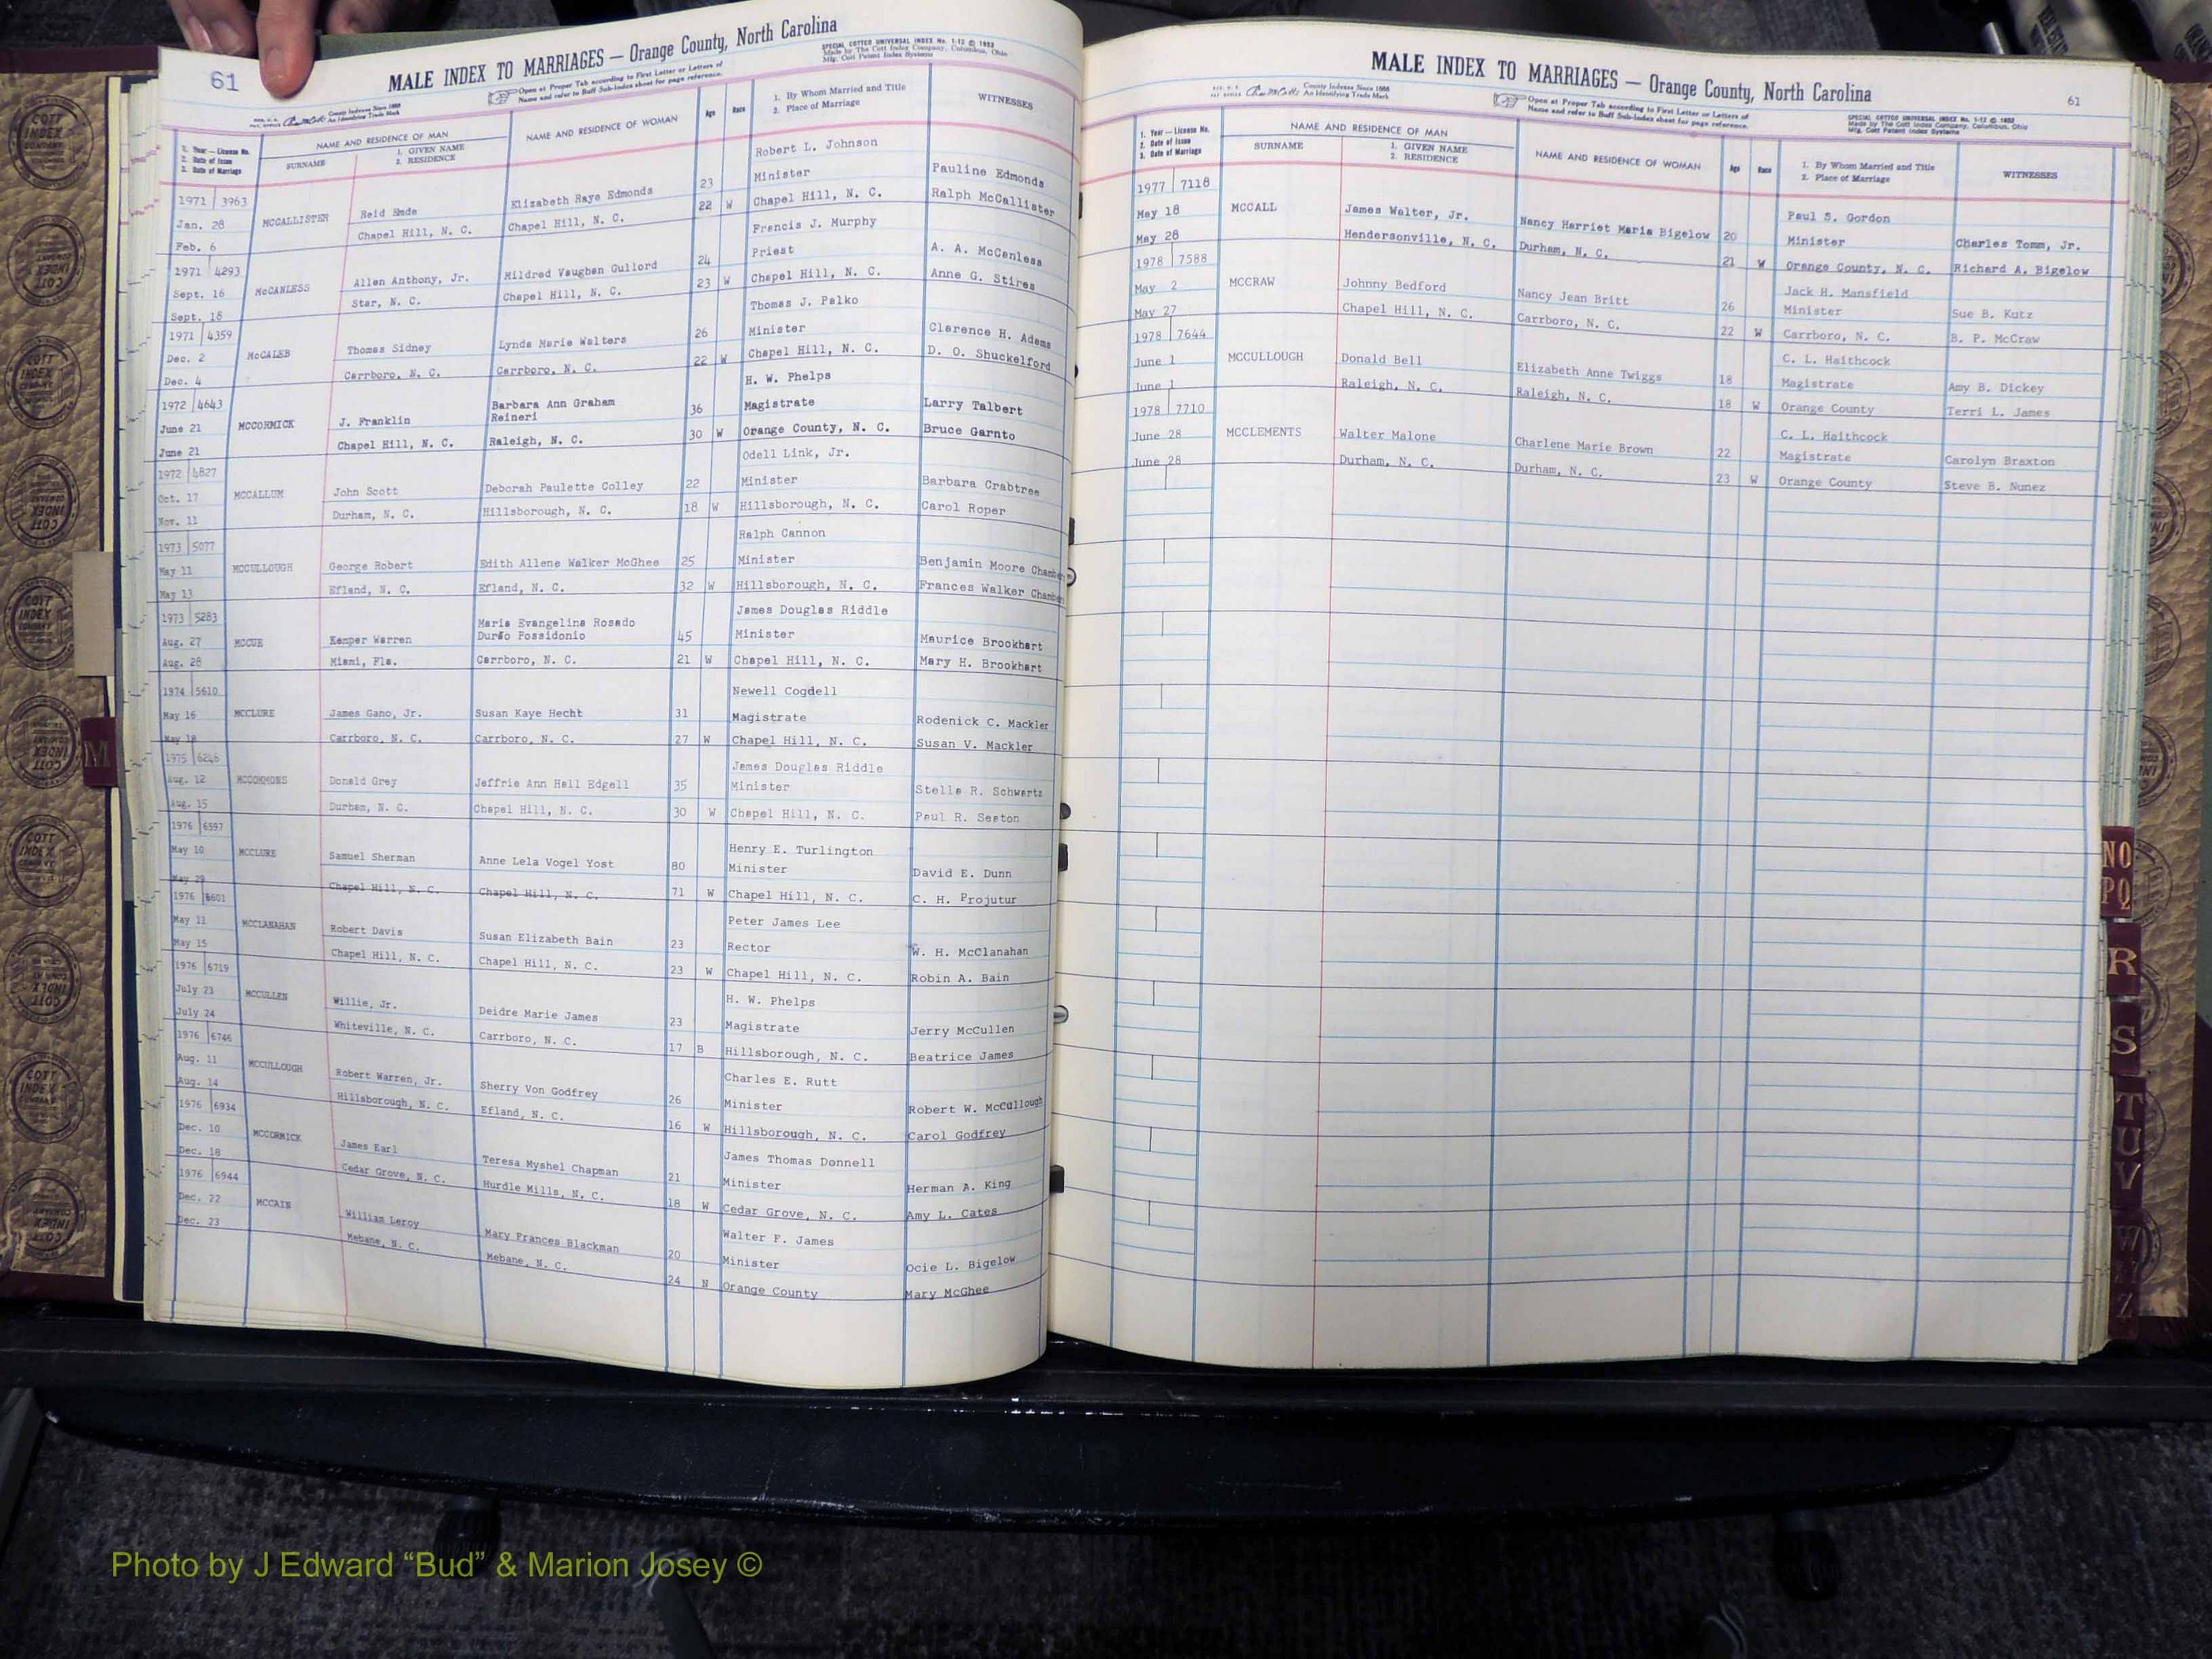 61
MALE INDEX TO MARRIAGES — Orange County, North Carolina
SPECIAL COTTCO UNIVERSAL INDEX No. 1-12 © 1952
Made by The Cott Index Company, Columbus, Ohio
Mfg. Cott Patent Index Systems
Open at Proper Tab according to First Letter or Letters of
Name and refer to Buff Sub-Index sheet for page reference.
County Indexes Since 1888
An Identifying Trade Mark
1. Year — License No.
2. Date of Issue
3. Date of Marriage
NAME AND RESIDENCE OF MAN
SURNAME
1. GIVEN NAME
2. RESIDENCE
NAME AND RESIDENCE OF WOMAN
Age
Race
1. By Whom Married and Title
2. Place of Marriage
WITNESSES
Robert L. Johnson
1971 3963 23 Minister Pauline Edmonds
Jan. 28 MCCALLISTER Reid Emde Elizabeth Raye Edmonds 22 W Chapel Hill, N. C. Ralph McCallister
Feb. 6 Chapel Hill, N. C. Chapel Hill, N. C.
Francis J. Murphy
1971 4293 24 Priest A. A. McCanless
Sept. 16 McCANLESS Allen Anthony, Jr. Mildred Vaughan Gullord 23 W Chapel Hill, N. C. Anne G. Stires
Sept. 18 Star, N. C. Chapel Hill, N. C.
Thomas J. Palko
1971 4359 26 Minister Clarence H. Adams
Dec. 2 McCALEB Thomas Sidney Lynda Marie Walters 22 W Chapel Hill, N. C. D. O. Shuckelford
Dec. 4 Carrboro, N. C. Carrboro, N. C.
H. W. Phelps
1972 4643 Barbara Ann Graham 36 Magistrate Larry Talbert
June 21 MCCORMICK J. Franklin Reineri
June 21 Chapel Hill, N. C. Raleigh, N. C. 30 W Orange County, N. C. Bruce Garnto
Odell Link, Jr.
1972 4827
Oct. 17 MCCALLUM John Scott Deborah Paulette Colley 22 Minister Barbara Crabtree
Nov. 11 Durham, N. C. Hillsborough, N. C. 18 W Hillsborough, N. C. Carol Roper
1973 5077 Ralph Cannon
May 11 MCCULLOUGH George Robert Edith Allene Walker McGhee 25 Minister Benjamin Moore
May 13 Efland, N. C. Efland, N. C. 32 W Hillsborough, N. C. Frances Walker
1973 5283 Maria Evangelina Rosado James Douglas Riddle
Aug. 27 MCCUE Kemper Warren Durão Possidonio 45 Minister Maurice Brookhart
Aug. 28 Miami, Fla. Carrboro, N. C. 21 W Chapel Hill, N. C. Mary H. Brookhart
1974 5610 Newell Cogdell
May 16 MCCLURE James Gano, Jr. Susan Kaye Hecht 31 Magistrate Rodenick C. Mackler
May 18 Carrboro, N. C. Carrboro, N. C. 27 W Chapel Hill, N. C. Susan V. Mackler
1975 6246 James Douglas Riddle
Aug. 12 MCCOMMONS Donald Grey Jeffrie Ann Hall Edgell 35 Minister Stella R. Schwartz
Aug. 15 Durham, N. C. Chapel Hill, N. C. 30 W Chapel Hill, N. C. Paul R. Seaton
1976 6597 Henry E. Turlington
May 10 MCCLURE Samuel Sherman Anne Lela Vogel Yost 80 Minister David E. Dunn
May 29 Chapel Hill, N. C. Chapel Hill, N. C. 71 W Chapel Hill, N. C. C. H. Projutur
1976 6601 Peter James Lee
May 11 MCCLANAHAN Robert Davis Susan Elizabeth Bain 23 Rector W. H. McClanahan
May 15 Chapel Hill, N. C. Chapel Hill, N. C. 23 W Chapel Hill, N. C. Robin A. Bain
1976 6719 H. W. Phelps
July 23 MCCULLEN Willie, Jr. Deidre Marie James 23 Magistrate Jerry McCullen
July 24 Whiteville, N. C. Carrboro, N. C. 17 B Hillsborough, N. C. Beatrice James
1976 6746 Charles E. Rutt
Aug. 11 MCCULLOUGH Robert Warren, Jr. Sherry Von Godfrey 26 Minister Robert W. McCullough
Aug. 14 Hillsborough, N. C. Efland, N. C. 16 W Hillsborough, N. C. Carol Godfrey
1976 6934 James Thomas Donnell
Dec. 10 MCCORMICK James Earl Teresa Myshel Chapman 21 Minister Herman A. King
Dec. 18 Cedar Grove, N. C. Hurdle Mills, N. C. 18 W Cedar Grove, N. C. Amy L. Cates
1976 6944 Walter F. James
Dec. 22 MCCAIN William Leroy Mary Frances Blackman 20 Minister Ocie L. Bigelow
Dec. 23 Mebane, N. C. Mebane, N. C. 24 N Orange County Mary McGhee
MALE INDEX TO MARRIAGES — Orange County, North Carolina
61
County Indexes Since 1888
An Identifying Trade Mark
Open at Proper Tab according to First Letter or Letters of
Name and refer to Buff Sub-Index sheet for page reference.
SPECIAL COTTCO UNIVERSAL INDEX No. 1-12 © 1952
Made by The Cott Index Company, Columbus, Ohio
Mfg. Cott Patent Index Systems
1. Year — License No.
2. Date of Issue
3. Date of Marriage
NAME AND RESIDENCE OF MAN
SURNAME
1. GIVEN NAME
2. RESIDENCE
NAME AND RESIDENCE OF WOMAN
Age
Race
1. By Whom Married and Title
2. Place of Marriage
WITNESSES
1977 7118 Paul S. Gordon
May 18 MCCALL James Walter, Jr. Nancy Harriet Maria Bigelow 20 Minister Charles Tomm, Jr.
May 28 Hendersonville, N. C. Durham, N. C. 21 W Orange County, N. C. Richard A. Bigelow
1978 7588 Jack H. Mansfield
May 2 MCCRAW Johnny Bedford Nancy Jean Britt 26 Minister Sue B. Kutz
May 27 Chapel Hill, N. C. Carrboro, N. C. 22 W Carrboro, N. C. B. P. McCraw
1978 7644 C. L. Haithcock
June 1 MCCULLOUGH Donald Bell Elizabeth Anne Twiggs 18 Magistrate Amy B. Dickey
June 1 Raleigh, N. C. Raleigh, N. C. 18 W Orange County Terri L. James
1978 7710 C. L. Haithcock
June 28 MCCLEMENTS Walter Malone Charlene Marie Brown 22 Magistrate Carolyn Braxton
June 28 Durham, N. C. Durham, N. C. 23 W Orange County Steve B. Nunez
M
NO
PQ
R
S
T
U
V
W
Z
COTT
INDEX
COMPANY
Photo by J Edward “Bud” & Marion Josey ©